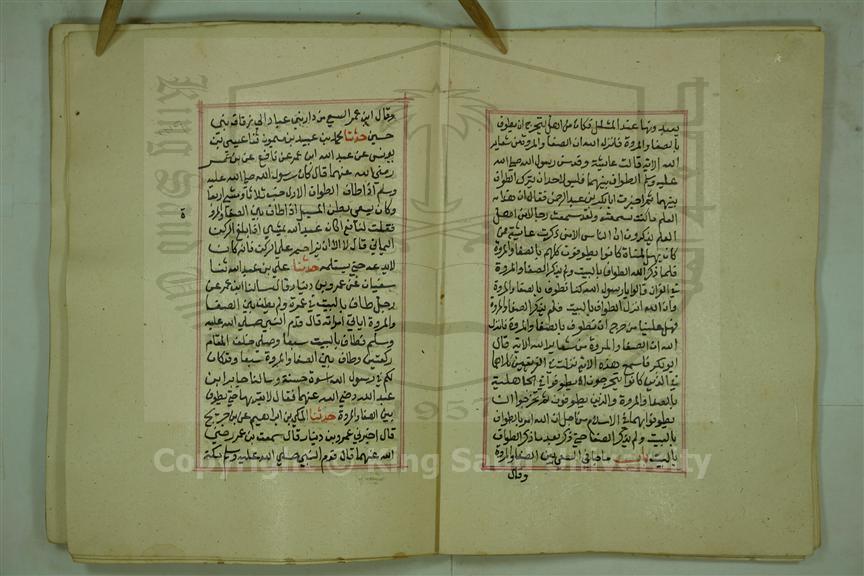 يعبدونها عند المشلل فكان من اهل يتحرج ان يطوف
بالصفا والمروة فانزل الله ان الصفا والمروة من شعاير
الله الاية قالت عايشة وقد سن رسول الله صلى الله
عليه وسلم الطواف بينهما فليس لاحد ان يترك الطواف
بينهما ثم اخبرت ابا بكر بن عبد الرحمن فقال ان هذا
العلم ما كنت سمعته ولقد سمعت رجالا من اهل
العلم يذكرون ان الناس الا من ذكرت عايشة ممن
كان يهل لمناة كانوا يطوفون كلهم بالصفا والمروة
فلما ذكر الله الطواف بالبيت ولم يذكر الصفا والمروة
في القران قالوا يا رسول الله كنا نطوف بالصفا والمروة
وان الله انزل الطواف بالبيت فلم يذكر الصفا والمروة
فهل علينا من حرج ان نطوف بالصفا والمروة فانزل
الله ان الصفا والمروة من شعاير الله الاية قال
ابو بكر فاسمع هذه الاية نزلت في الفريقين كلاهما
في الذين كانوا يتحرجون ان يطوفوا في الجاهلية
بالصفا والمروة والذين يطوفون ثم تحرجوا ان
يطوفوا بهما في الاسلام من اجل ان الله امر بالطواف
بالبيت ولم يذكر الصفا حتى ذكر بعد ما ذكر الطواف
بالبيت باب ما جا في السعي بين الصفا والمروة
وقال
وقال ابن عمر السعي من دار بني عباد الى زقاق بني
حسين حدثنا محمد بن عبيد بن ميمون ثنا عيسى بن
يونس عن عبد الله ابن عمر عن نافع عن بن عمر
رضي الله عنهما قال كان رسول الله صلى الله عليه
وسلم اذا طاف الطواف الاول خب ثلاثا ومشى اربعا
وكان يسعى بطن المسيل اذا طاف بين الصفا والمروة
فقلت لنافع اكان عبد الله يمشي اذا بلغ الركن
اليماني قال لا الا ان يزاحم على الركن فانه كان
لا يدعه حتى يستلمه حدثنا علي بن عبد الله ثنا
سفيان عن عمرو بن دينار قال سالنا ابن عمر عن
رجل طاف بالبيت في عمرة ولم يطف بين الصفا
والمروة اياتي امراته قال قدم النبي صلى الله عليه
وسلم فطاف بالبيت سبعا وصلى خلف المقام
ركعتين وطاف بين الصفا والمروة سبعا وقد كان
لكم في رسول الله اسوة حسنة وسالنا جابر ابن
عبد الله رضي الله عنهما فقال لا يقربنها حتى يطوف
بين الصفا والمروة حدثنا المكي بن ابراهيم عن بن جريج
قال اخبرني عمرو بن دينار قال سمعت بن عمر رضي
الله عنهما قال قدم النبي صلى الله عليه وسلم مكة
King Saud University
1957
Copyright © King Saud University